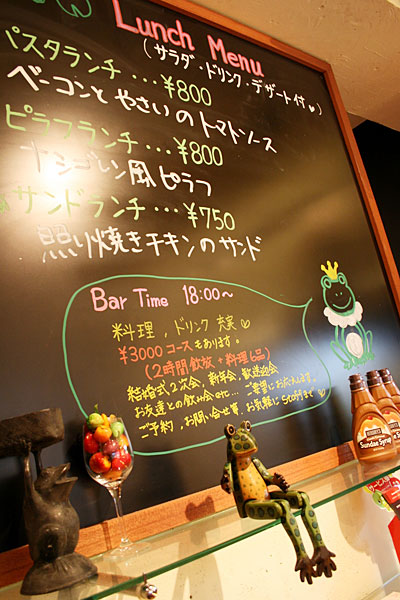 Lunch Menu
(サラダ・ドリンク・デザート付♡)
パスタランチ・・・¥800
ベーコンとやさいのトマトソース
ピラフランチ・・・¥800
ナシゴレン風ピラフ
サンドランチ・・・¥750
照り焼きチキンのサンド
Bar Time 18:00〜
料理、ドリンク 充実♡
¥3000コースもあります。
(2時間飲放+料理6品)
結婚式2次会、新年会、歓送迎会
お友達との飲み会etc… ご要望にお応えします。
ご予約、お問い合せ等、お気軽にStaffまで
HERSHEY'S
Sundae Syrup